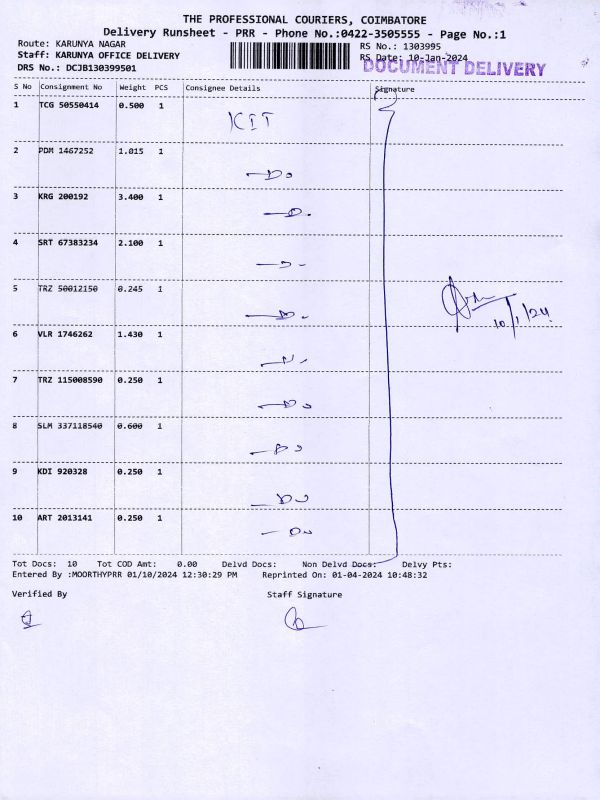 THE PROFESSIONAL COURIERS, COIMBATORE
Delivery Runsheet - PRR - Phone No.:0422-3505555 - Page No.:1
Route: KARUNYA NAGAR
RS No.: 1303995
Staff: KARUNYA OFFICE DELIVERY
RS Date: 10-Jan-2024
DRS No.: DCJB130399501
DOCUMENT DELIVERY
S No Consignment No Weight PCS Consignee Details Signature
1 TCG 50550414 0.500 1 KIT
2 PDM 1467252 1.015 1 —Do
3 KRG 200192 3.400 1 —D.
4 SRT 67383234 2.100 1
5 TRZ 50012150 0.245 1 —Do.
10/1/24
6 VLR 1746262 1.430 1
7 TRZ 115008590 0.250 1 —Do
8 SLM 337118540 0.600 1 —Do
9 KDI 920328 0.250 1 —Do
10 ART 2013141 0.250 1 —Do
Tot Docs: 10 Tot COD Amt: 0.00 Delvd Docs: Non Delvd Docs: Delvy Pts:
Entered By :MOORTHYPRR 01/10/2024 12:30:29 PM Reprinted On: 01-04-2024 10:48:32
Verified By Staff Signature